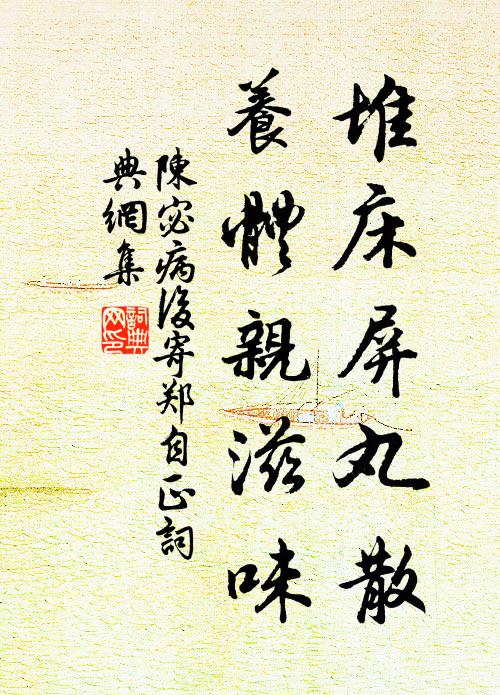 堆床屏丸散
養體親滋味
陳宓病後寄郑自正詞
典網集
詞典
网印